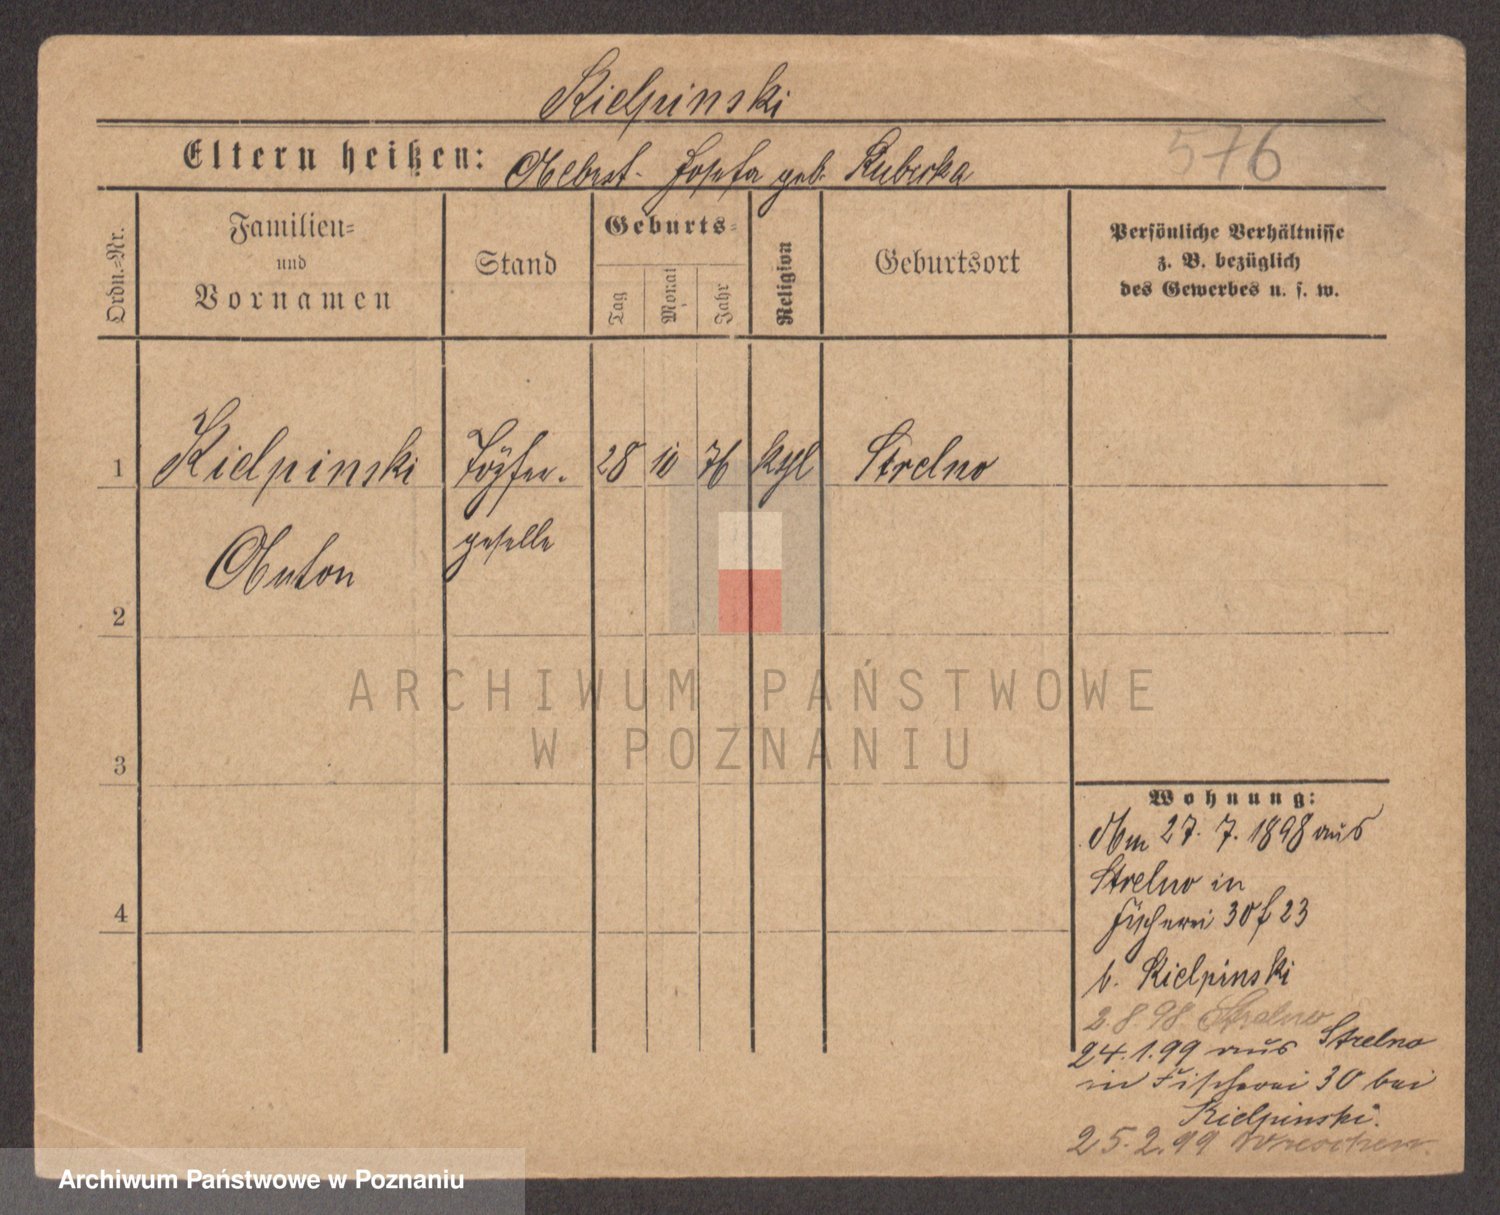 Kielpinski
Eltern heißen: Albert - Josefa geb. Kuberka
576
Ordn.-Nr.
Familien-
und
Vornamen
Stand
Geburts-
Tag
Monat
Jahr
Religion
Geburtsort
Persönliche Verhältnisse
z. B. bezüglich
des Gewerbes u. s. w.
1 Kielpinski Töpfer- 28 10 76 kthl Strelno
Anton geselle
2
3
4
Wohnung:
Am 27. 7. 1898 aus
Strelno in
Fischerei 30 f 23
b. Kielpinski
2.8.98 Strelno
24.1.99 aus Strelno
in Fischerei 30 bei
Kielpinski.
25.2.99 Wreschen.
ARCHIWUM PAŃSTWOWE
W POZNANIU
Archiwum Państwowe w Poznaniu